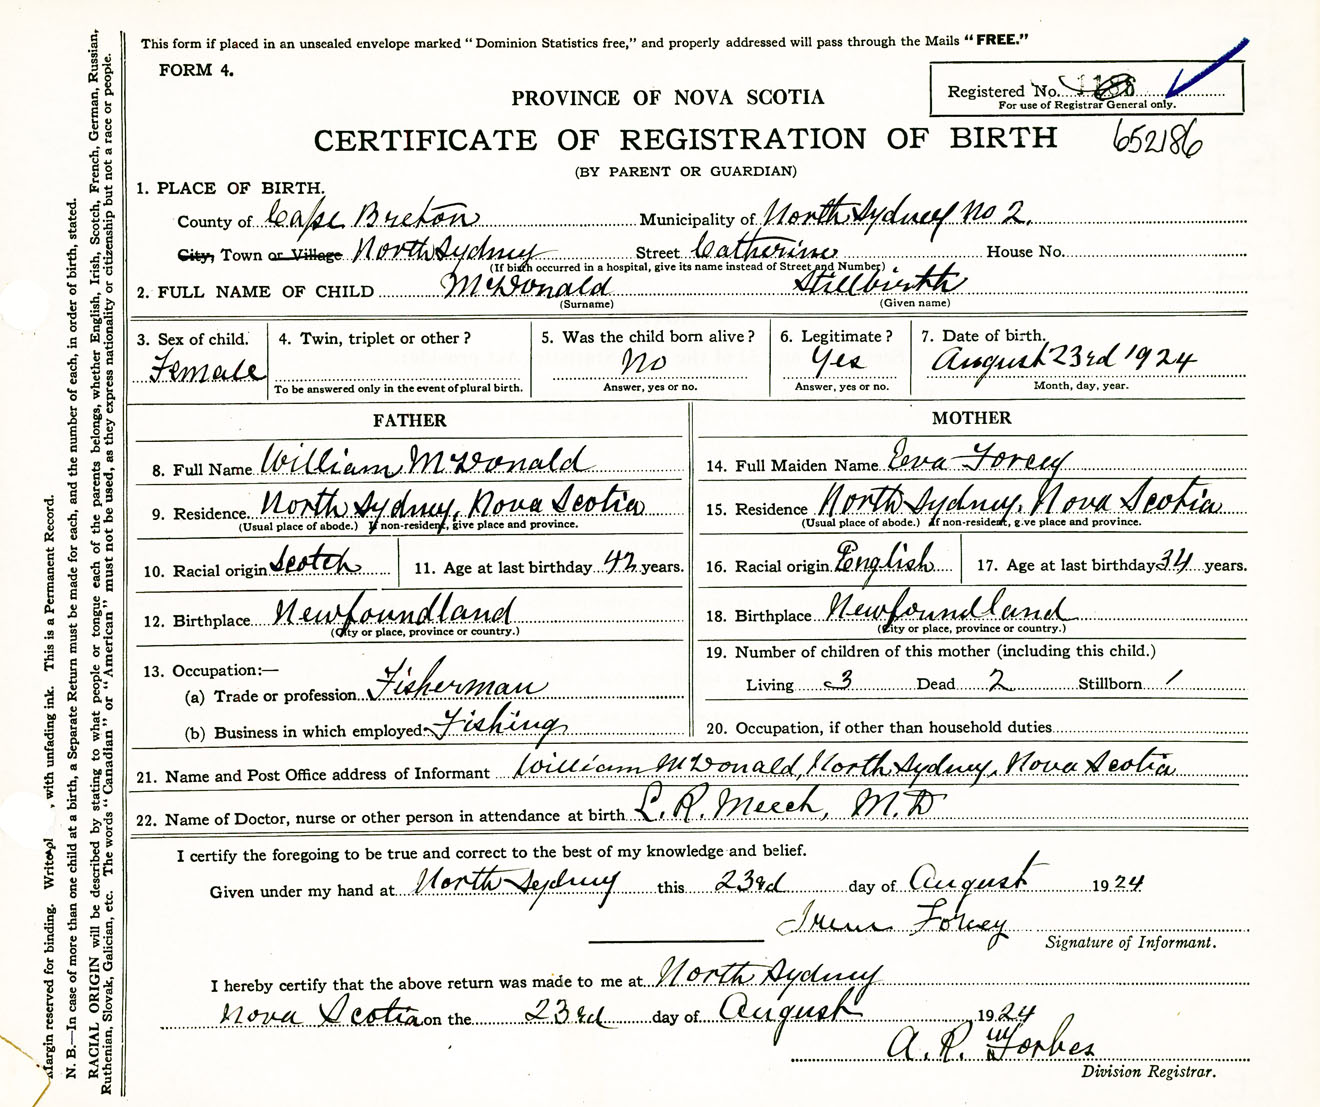 This form if placed in an unsealed envelope marked "Dominion Statistics free," and properly addressed will pass through the Mails "FREE."
FORM 4.
Registered No. 1186
For use of Registrar General only.
PROVINCE OF NOVA SCOTIA
CERTIFICATE OF REGISTRATION OF BIRTH 652186
(BY PARENT OR GUARDIAN)
1. PLACE OF BIRTH.
County of Cape Breton Municipality of North Sydney No 2.
City, Town or Village North Sydney Street Catherine House No.
(If birth occurred in a hospital, give its name instead of Street and Number)
2. FULL NAME OF CHILD McDonald Stillbirth
(Surname) (Given name)
3. Sex of child. 4. Twin, triplet or other? 5. Was the child born alive? 6. Legitimate? 7. Date of birth.
Female No Yes August 23rd 1924
To be answered only in the event of plural birth. Answer, yes or no. Answer, yes or no. Month, day, year.
FATHER
8. Full Name William McDonald
9. Residence North Sydney, Nova Scotia
(Usual place of abode.) If non-resident, give place and province.
10. Racial origin Scotch 11. Age at last birthday 42 years.
12. Birthplace Newfoundland
(City or place, province or country.)
13. Occupation:—
(a) Trade or profession Fisherman
(b) Business in which employed Fishing
MOTHER
14. Full Maiden Name Eva Forcey
15. Residence North Sydney, Nova Scotia
(Usual place of abode.) If non-resident, g.ve place and province.
16. Racial origin English 17. Age at last birthday 34 years.
18. Birthplace Newfoundland
(City or place, province or country.)
19. Number of children of this mother (including this child.)
Living 3 Dead 2 Stillborn 1
20. Occupation, if other than household duties
21. Name and Post Office address of Informant William McDonald, North Sydney, Nova Scotia
22. Name of Doctor, nurse or other person in attendance at birth L. R. Meech, M.D
I certify the foregoing to be true and correct to the best of my knowledge and belief.
Given under my hand at North Sydney this 23rd day of August 1924
Irene Forcey
Signature of Informant.
I hereby certify that the above return was made to me at North Sydney
Nova Scotia on the 23rd day of August 1924
A. R. Forbes
Division Registrar.
Margin reserved for binding. Write pl , with unfading ink. This is a Permanent Record.
N. B.—In case of more than one child at a birth, a Separate Return must be made for each, and the number of each, in order of birth, stated.
RACIAL ORIGIN will be described by stating to what people or tongue each of the parents belongs, whether English, Irish, Scotch, French, German, Russian,
Ruthenian, Slovak, Galician, etc. The words "Canadian" or "American" must not be used, as they express nationality or citizenship but not a race or people.